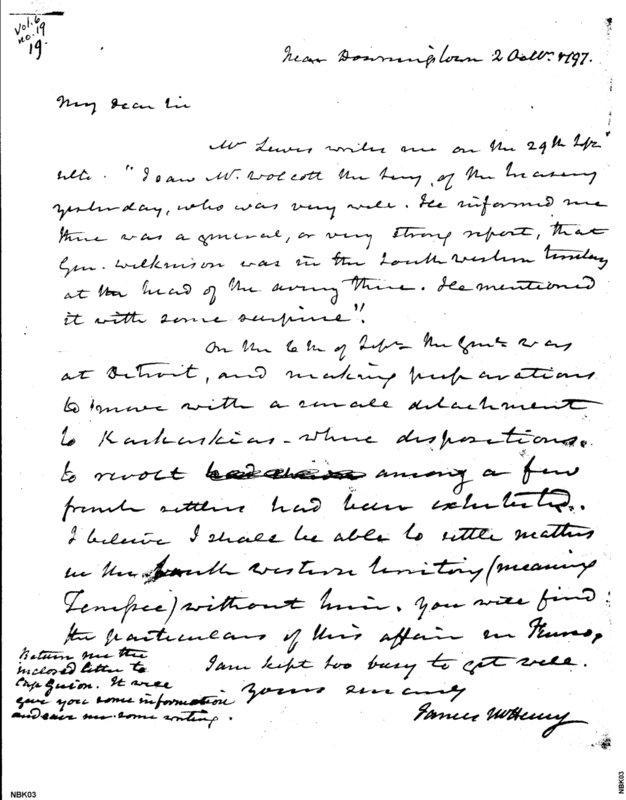 Vol. 6
no. 19
19.
Near Downingtown 2 Octbr. 1797.
My dear Sir
Mr Lewis writes me on the 29th Sepr
ulto. "I saw Mr. Wolcott the Secy. of the Treasury
yesterday, who was very well. He informed me
there was a general, or very strong report, that
Gen. Wilkinson was in the South western territory
at the head of the army there. He mentioned
it with some surprise".
On the 6th of Sepr. the Genl. was
at Detroit, and making preparations
to move with a small detachment
to Kaskaskias - where dispositions
to revolt among a few
french settlers had been exhibited.
I believe I shall be able to settle matters
in the South western territory (meaning
Tenessee) without him. You will find
the particulars of this affair in
I am kept too busy to get well.
Yours sincerely
James McHenry
Return me the
inclosed letter to
Cap Guion. It will
give you some information
and save me some writing.
NBK03
NBK03